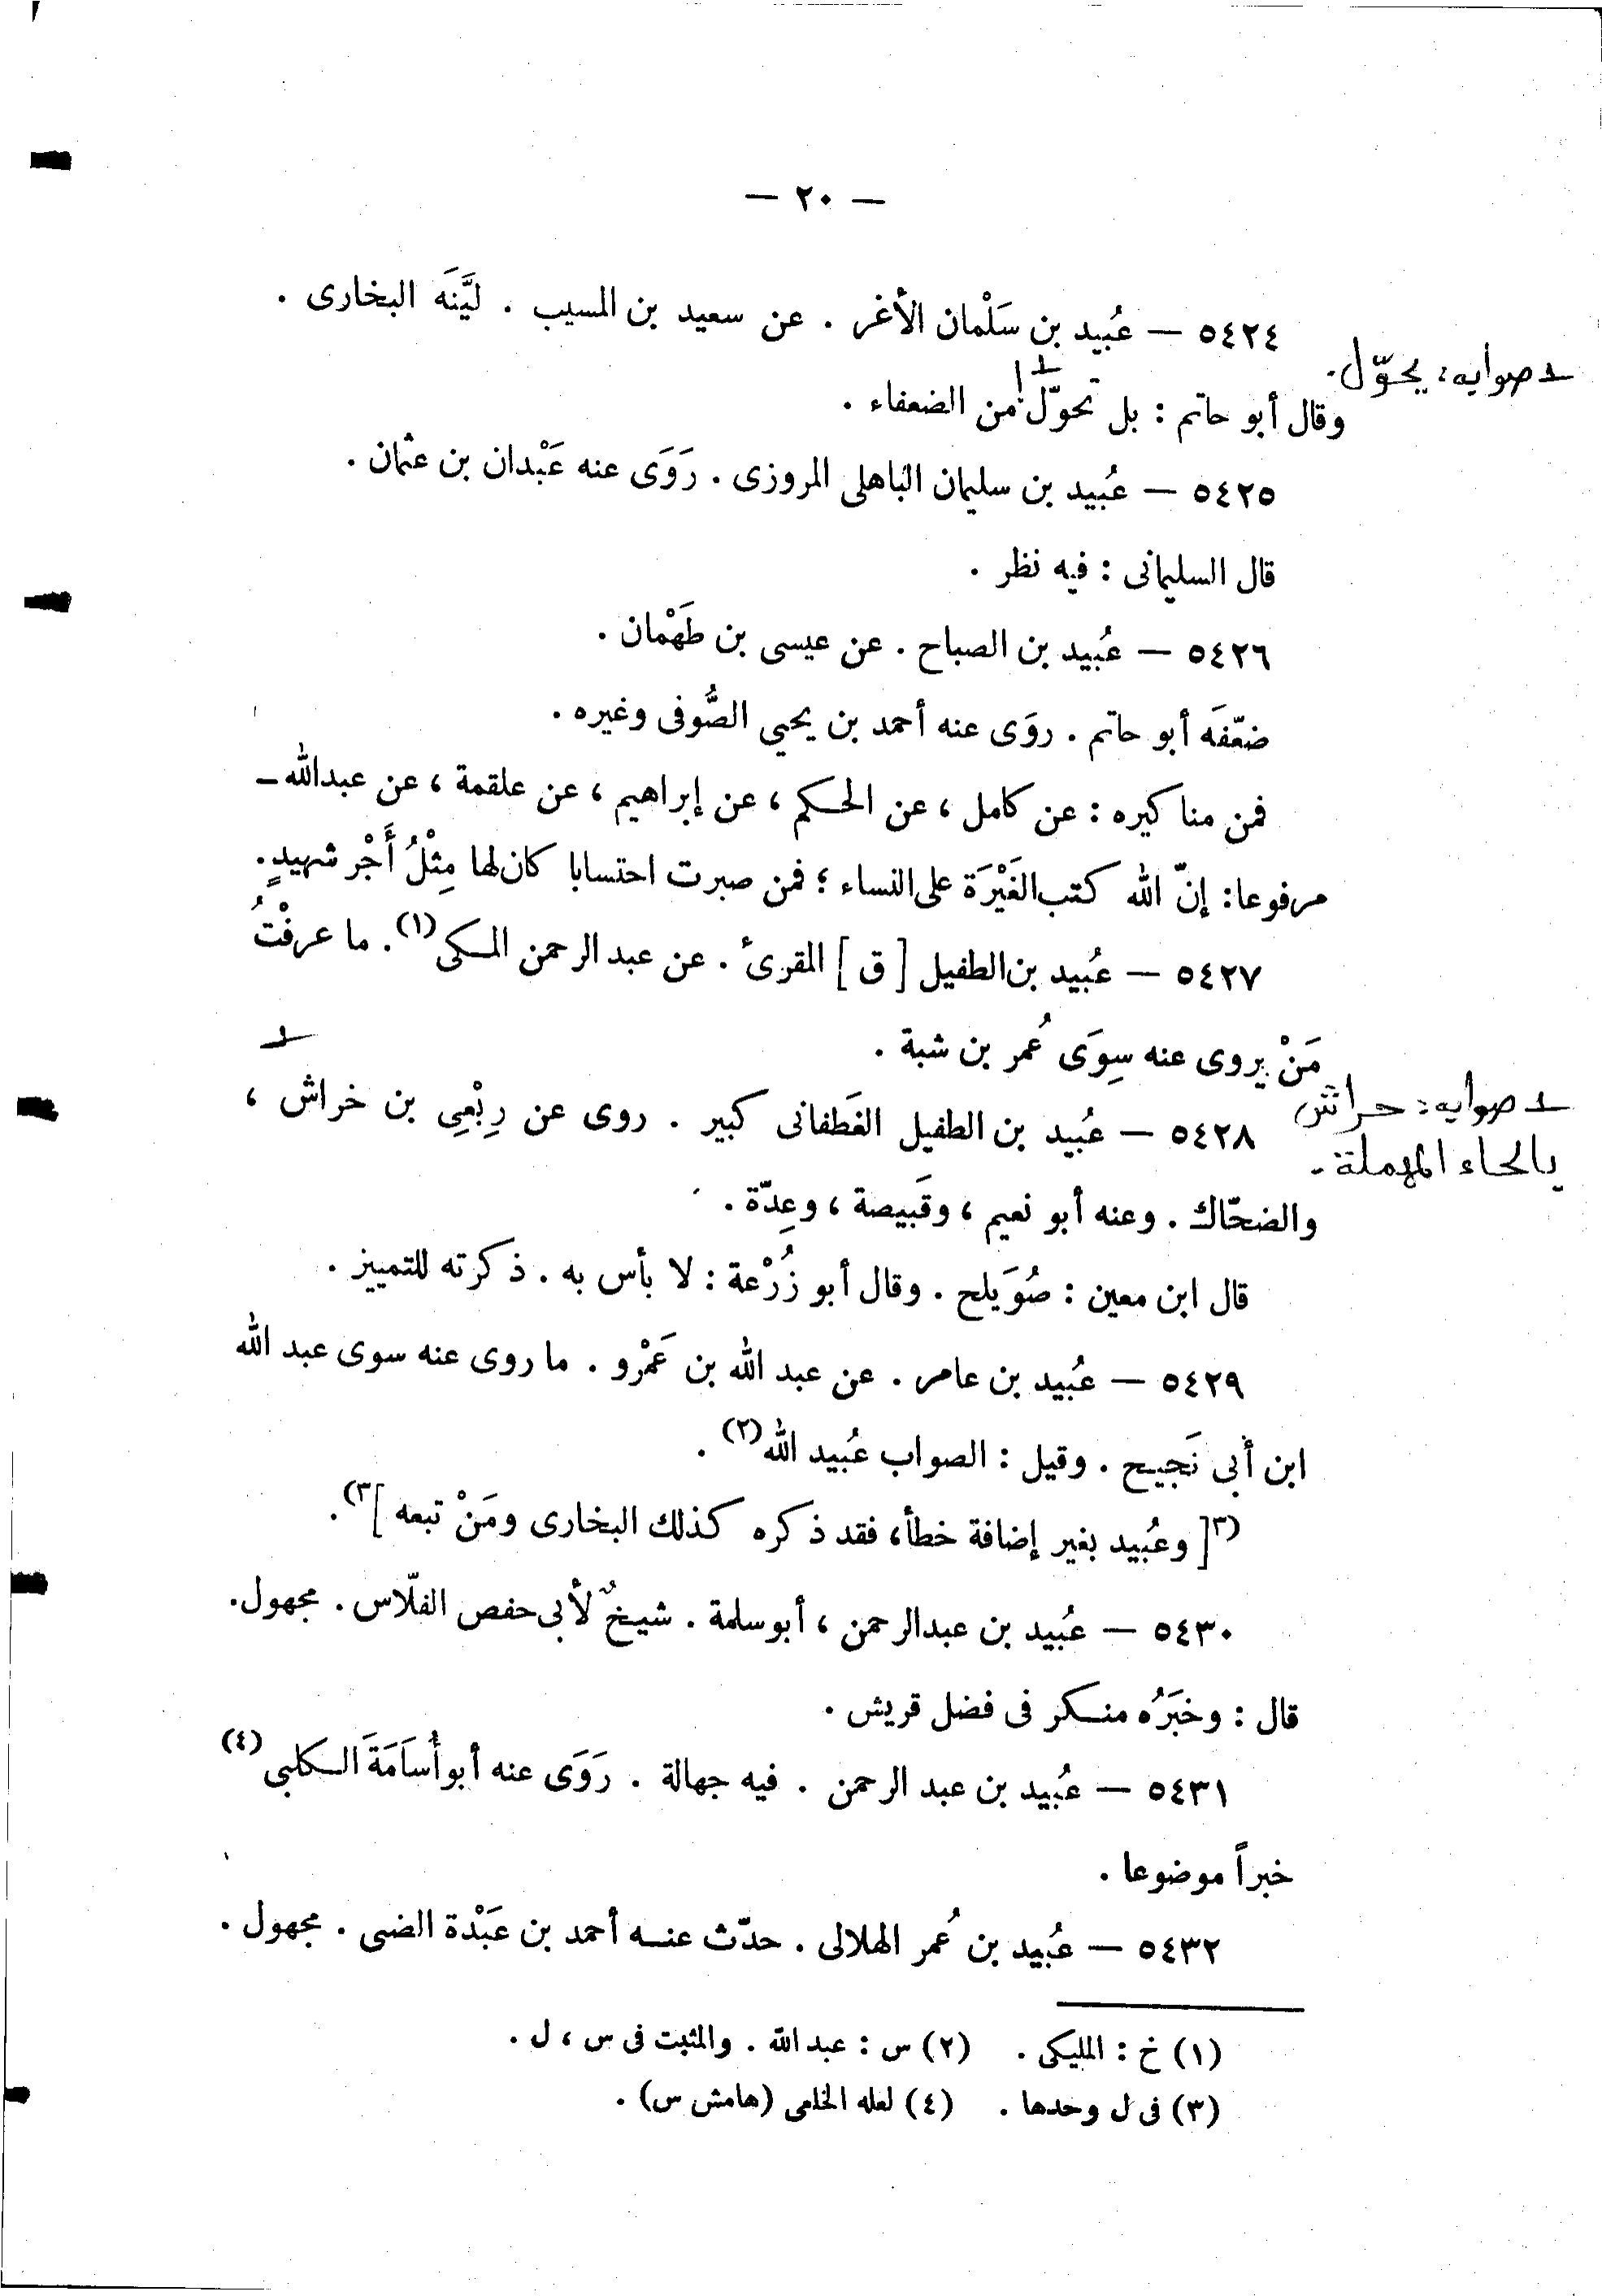 — ٢٠ —
٥٤٢٤ — عُبيد بن سَلْمان الأغر . عن سعيد بن المسيب . ليَّنَه البخارى .
ـد صوابه: يحوّل.
وقال أبو حاتم : بل تحوّل من الضعفاء .
٥٤٢٥ — عُبيد بن سليمان الباهلى المروزى . رَوَى عنه عَبْدان بن عثمان .
قال السليمانى : فيه نظر .
٥٤٢٦ — عُبيد بن الصباح . عن عيسى بن طَهْمان .
ضعّفَه أبو حاتم . روَى عنه أحمد بن يحيى الصُّوفى وغيره .
فمن مناكيره : عن كامل ، عن الحكم ، عن إبراهيم ، عن علقمة ، عن عبدالله —
مرفوعا : إنّ الله كتب الغَيْرَة على النساء ؛ فمن صبرت احتسابا كان لها مِثْلُ أَجْر شهيدٍ .
٥٤٢٧ — عُبيد بن الطفيل [ ق ] المقرئ . عن عبد الرحمن المكى (١) . ما عرفْتُ
مَنْ يروى عنه سِوَى عُمر بن شبة .
ـد صوابه: حراش
٥٤٢٨ — عُبيد بن الطفيل الغَطفانى كبير . روى عن رِبْعِى بن خراش ،
بالحاء المهملة .
والضحّاك . وعنه أبو نعيم ، وقَبيصة ، وعِدّة .
قال ابن معين : صُوَيلح . وقال أبو زُرْعة : لا بأس به . ذكرته للتمييز .
٥٤٢٩ — عُبيد بن عامر . عن عبد الله بن عَمْرو . ما روى عنه سوى عبد الله
ابن أبى نَجيح . وقيل : الصواب عُبيد الله (٢) .
(٣[ وعُبيد بغير إضافة خطأ، فقد ذكره كذلك البخارى ومَنْ تبعه ]٣) .
٥٤٣٠ — عُبيد بن عبدالرحمن ، أبو سلمة . شيخٌ لأبى حفص الفلّاس . مجهول .
قال : وخبَرُه منكر فى فضل قريش .
٥٤٣١ — عُبيد بن عبد الرحمن . فيه جهالة . رَوَى عنه أبو أُسَامَةَ الكلبى (٤)
خبراً موضوعا .
٥٤٣٢ — عُبيد بن عُمر الهلالى . حدّث عنه أحمد بن عَبْدة الضبى . مجهول .
(١) خ : المليكى . (٢) س : عبد الله . والمثبت فى س ، ل .
(٣) فى ل وحدها . (٤) لعله الخامى (هامش س) .